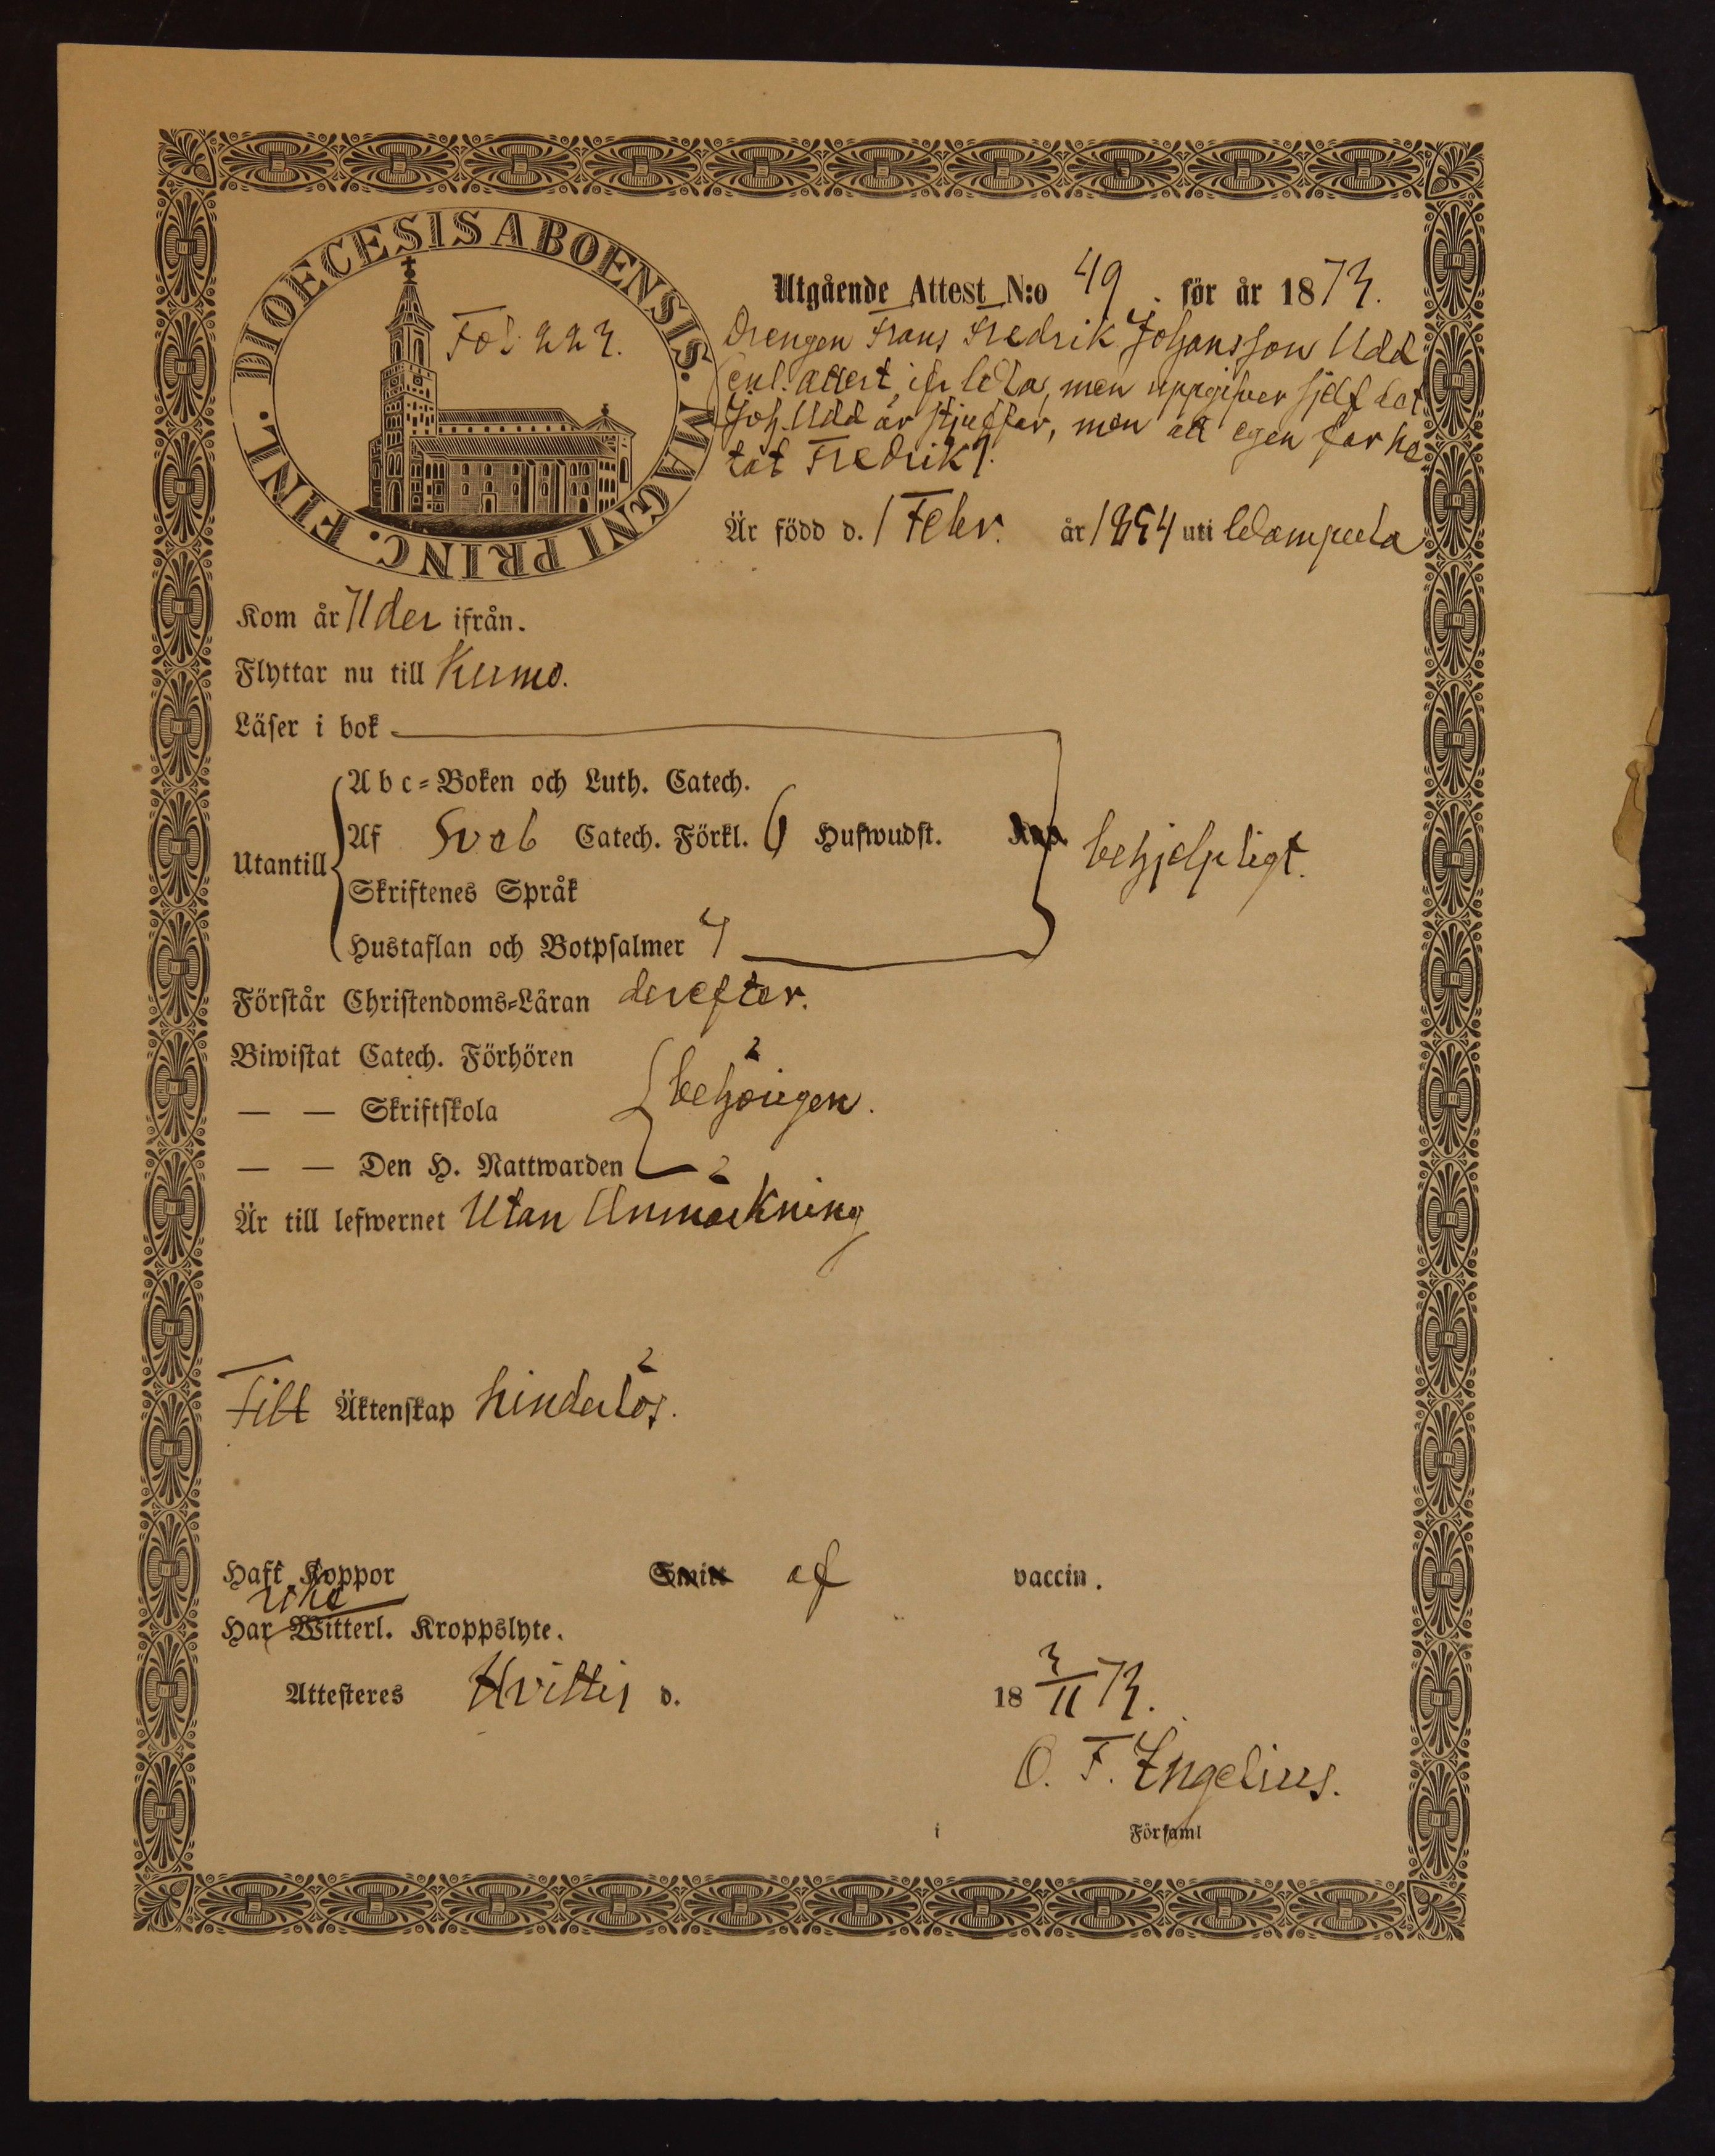 DIOECESIS ABOENSIS. MAGNI PRINC. FINL.
Fol. 223.
Utgående Attest N:o 49. för år 1873.
Drengen Frans Fredrik Johansson Udd
(enl. attest, men uppgifver sjelf dat
Joh. Udd är stjuffar, men att egen far he
tat Fredrik).
Är född d. 1 Febr. år 1854 uti Wampula
Kom år 71 der ifrån.
Flyttar nu till Kumo.
Läser i bok
Utantill
Abc-Boken och Luth. Catech.
Af Sveb Catech. Förkl. 6 Hufwudst.
behjelpligt.
Skriftenes Språk
Hustaflan och Botpsalmer 7
Förstår Christendoms-Läran derefter.
Biwistat Catech. Förhören
— — Skriftskola
behörigen.
— — Den H. Nattwarden
Är till lefwernet Utan Anmärkning
Till Äktenskap hinderlös.
Haft Koppor af vaccin.
icke
Har Witterl. Kroppslyte.
Attesteres Hvittis d. 18 3/11 73.
O. F. Engelius.
i Församl